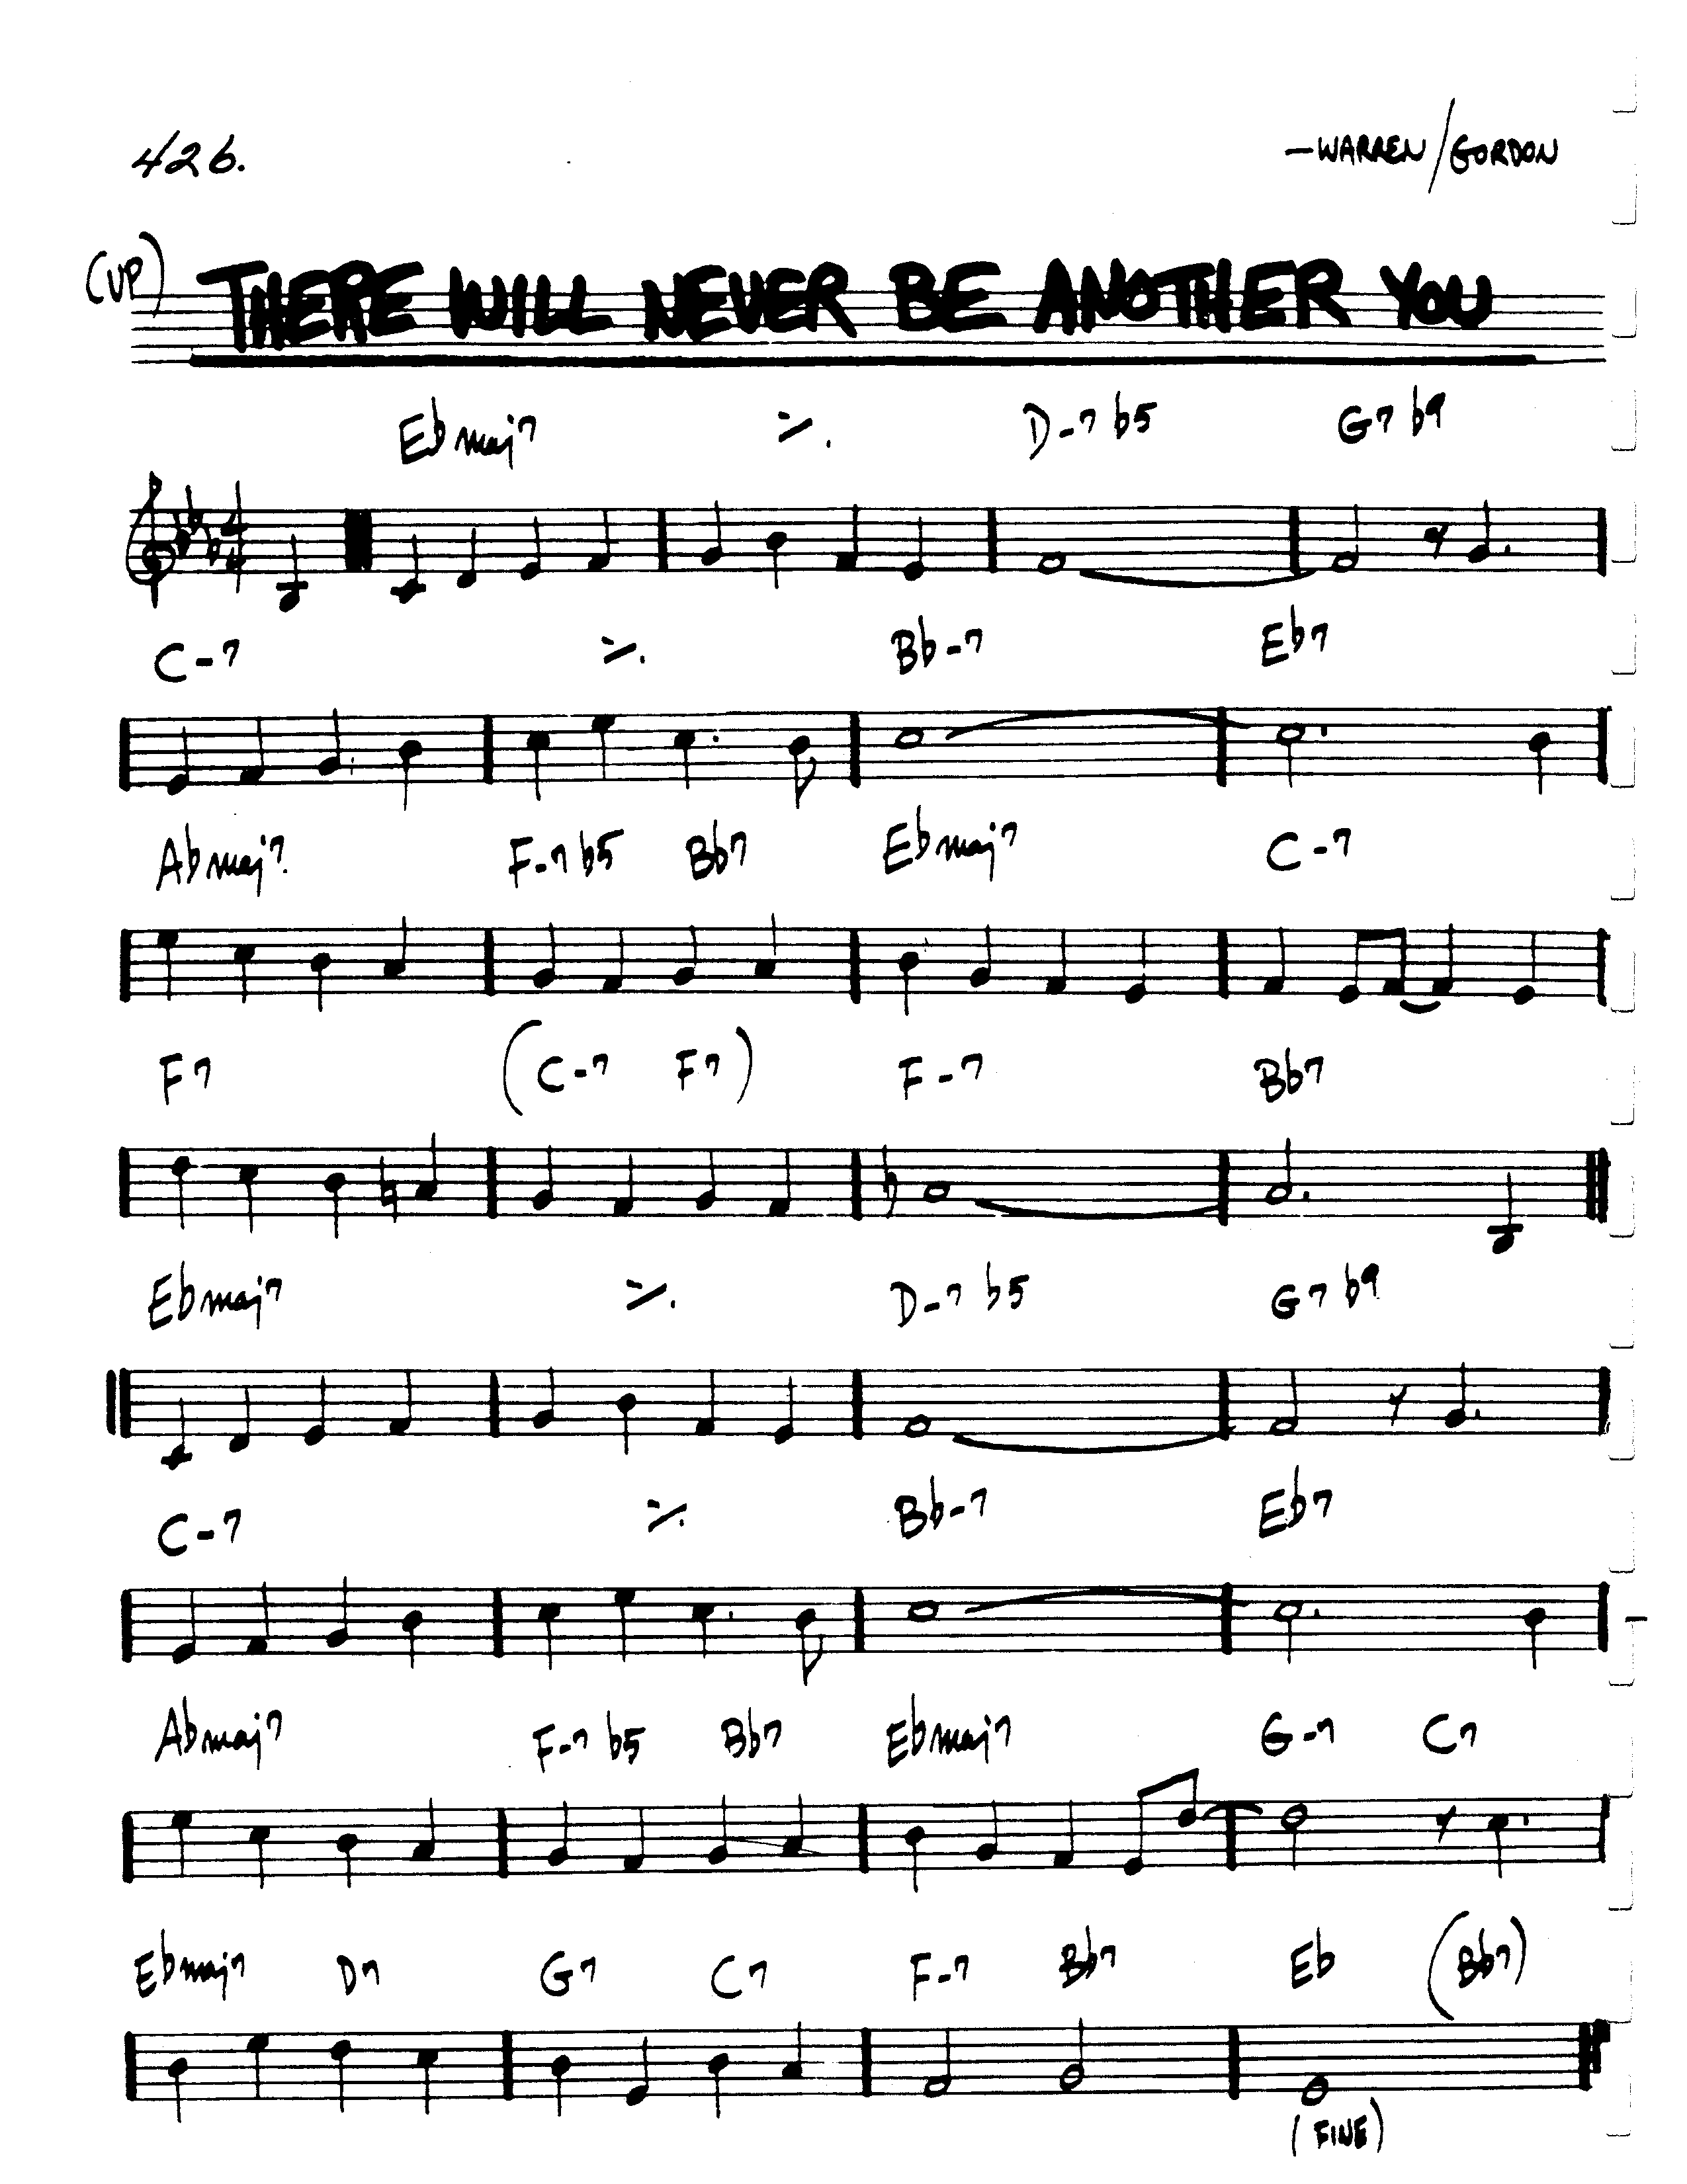 426.
—WARREN/GORDON
(UP) THERE WILL NEVER BE ANOTHER YOU
Ebmaj7 ٪ D-7b5 G7b9
4
4
C-7 ٪ Bb-7 Eb7
Abmaj7. F-7b5 Bb7 Ebmaj7 C-7
F7 (C-7 F7) F-7 Bb7
Ebmaj7 ٪ D-7b5 G7b9
C-7 ٪ Bb-7 Eb7
Abmaj7 F-7b5 Bb7 Ebmaj7 G-7 C7
Ebmaj7 D7 G7 C7 F-7 Bb7 Eb (Bb7)
(FINE)